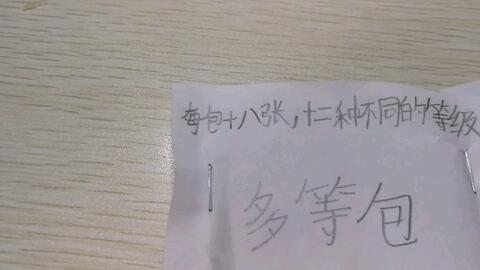 每包十八张，十二种不同的等级
多等包